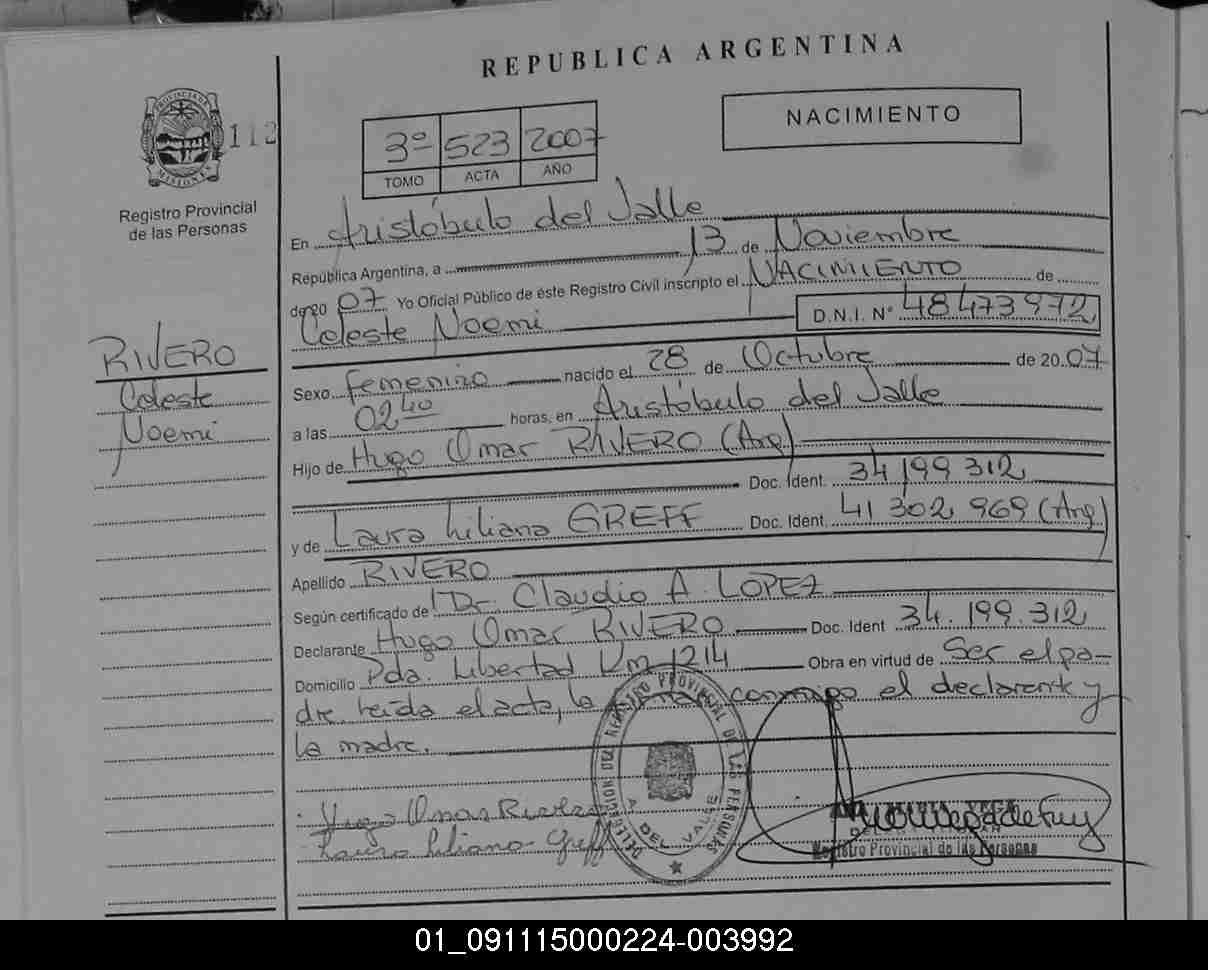 REPUBLICA ARGENTINA
PROVINCIA DE MISIONES
112
Registro Provincial
de las Personas
3º 523 2007
TOMO ACTA AÑO
NACIMIENTO
En Aristóbulo del Valle
República Argentina, a 13 de Noviembre
de 20 07 Yo Oficial Público de éste Registro Civil inscripto el NACIMIENTO de
Celeste Noemi D.N.I. Nº 48473972
RIVERO
Celeste
Noemi
Sexo femenino nacido el 28 de Octubre de 20 07
a las 02 40 horas, en Aristóbulo del Valle
Hijo de Hugo Omar RIVERO (Arg)
Doc. Ident. 34 199 312
y de Laura Liliana GREFF Doc. Ident. 41 302 969 (Arg)
Apellido RIVERO
Según certificado de Dr. Claudio A. LOPEZ
Declarante Hugo Omar RIVERO Doc. Ident 34.199.312
Domicilio Pda. Libertad Km 1214 Obra en virtud de Ser el pa-
dre. Leída el acta, la conmigo el declarante y
la madre.
Hugo Omar Rivero
Laura Liliana Greff
DELEGACION DEL REGISTRO PROVINCIAL DE LAS PERSONAS
DEL VALLE
Registro Provincial de las Personas
01_091115000224-003992